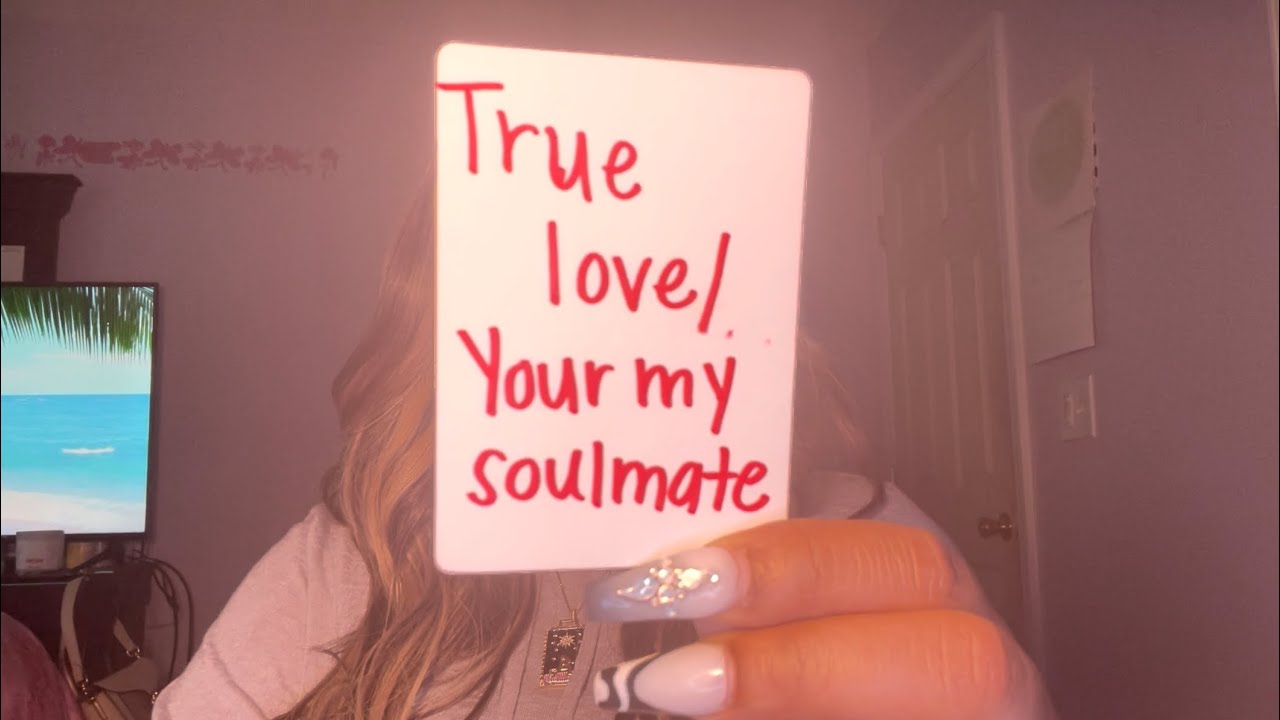 True
love/
Your my
soulmate